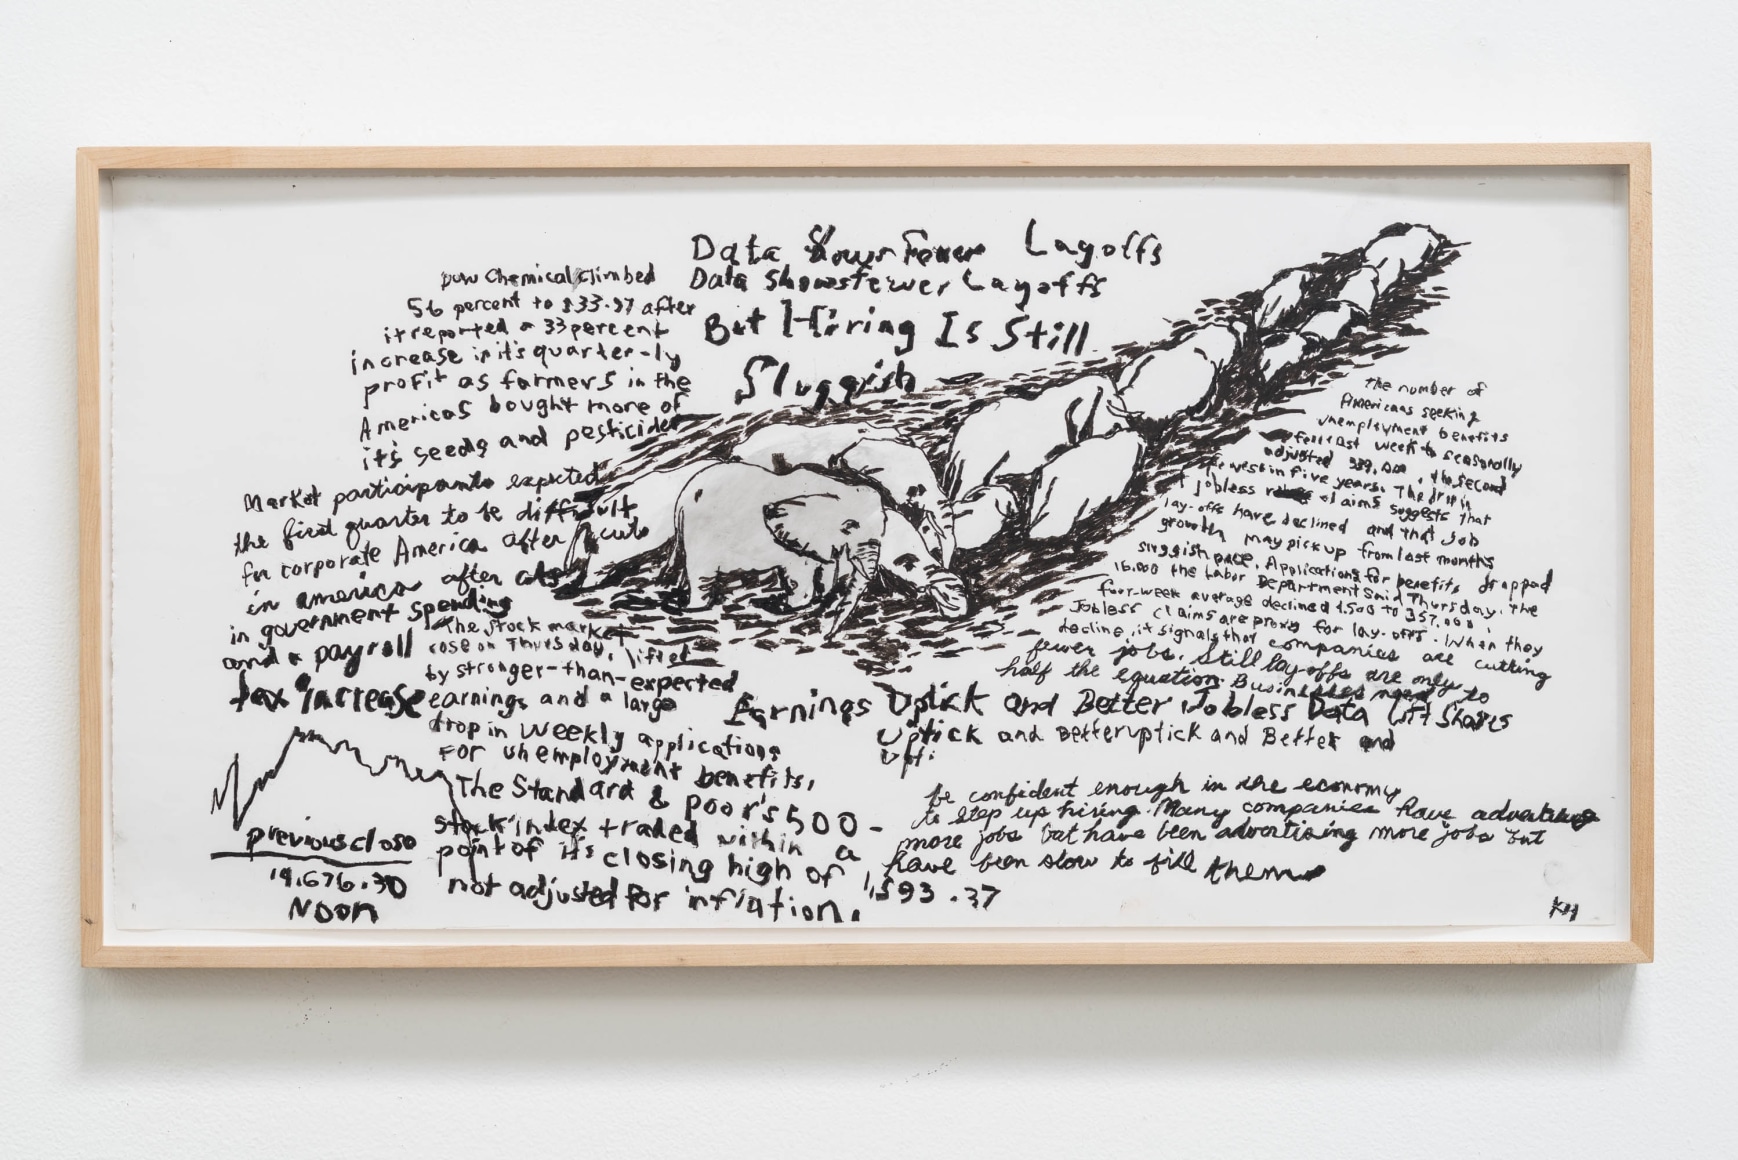 Data Shows Fewer Layoffs
Data Shows fewer Layoffs
But Hiring Is Still
Sluggish
Dow Chemical climbed
56 percent to $33.97 after
it reported a 33 percent
increase in it's quarter-ly
profit as farmers in the
Americas bought more of
it's seeds and pesticides
Market participants expected
the first quarter to be difficult
for corporate America after cuts
in america after cuts
in government spending
and a payroll
tax increase
The stock market
rose on Thursday, lifted
by stronger-than-expected
earnings and a large
drop in weekly applications
For unemployment benefits,
The Standard & poor's 500-
stock index traded within a
point of its closing high of 1,593.37
not adjusted for inflation.
previous close
14,676.30
Noon
the number of
Americans seeking
unemployment benefits
fell last week to seasonally
adjusted 339,000, the second
lowest in five years. The drop in
jobless claims suggests that
lay-offs have declined and that job
growth may pick up from last months
sluggish pace. Applications for benefits dropped
16,000 the Labor Department said Thursday. The
four-week average declined 4,500 to 357,000.
Jobless claims are proxy for lay-offs. When they
decline, it signals that companies are cutting
fewer jobs. Still lay-offs are only
half the equation. Businesses need to
Earnings Uptick and Better Jobless Data Lift Shares
Uptick and Betteruptick and Better and
Upt.
be confident enough in the economy
to step up hiring. Many companies have advertising
more jobs but have been advertising more jobs but
have been slow to fill them
KH